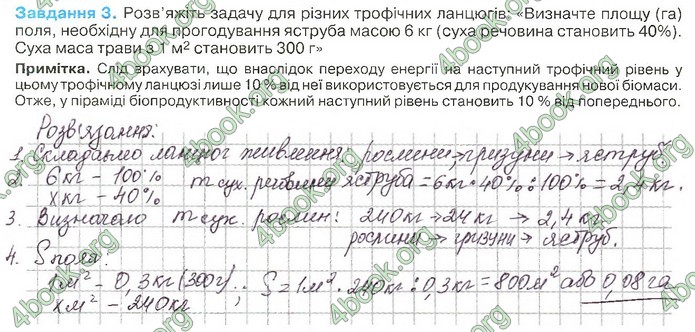 Завдання 3. Розв'яжіть задачу для різних трофічних ланцюгів: «Визначте площу (га)
поля, необхідну для прогодування яструба масою 6 кг (суха речовина становить 40%).
Суха маса трави з 1 м² становить 300 г»
Примітка. Слід врахувати, що внаслідок переходу енергії на наступний трофічний рівень у
цьому трофічному ланцюзі лише 10 % від неї використовується для продукування нової біомаси.
Отже, у піраміді біопродуктивності кожний наступний рівень становить 10 % від попереднього.
Розв'язання:
1. Складаємо ланцюг живлення: рослини → гризуни → яструб.
2. 6кг – 100% m сух. речовини яструба = 6кг · 40% : 100% = 2,4 кг.
xкг – 40%
3. Визначаємо m сух. рослин: 240кг → 24 кг → 2,4 кг
рослини → гризуни → яструб.
4. S поля:
1м² – 0,3кг (300г); S = 1м² · 240кг : 0,3кг = 800м² або 0,08 га
xм² – 240кг
4book.org